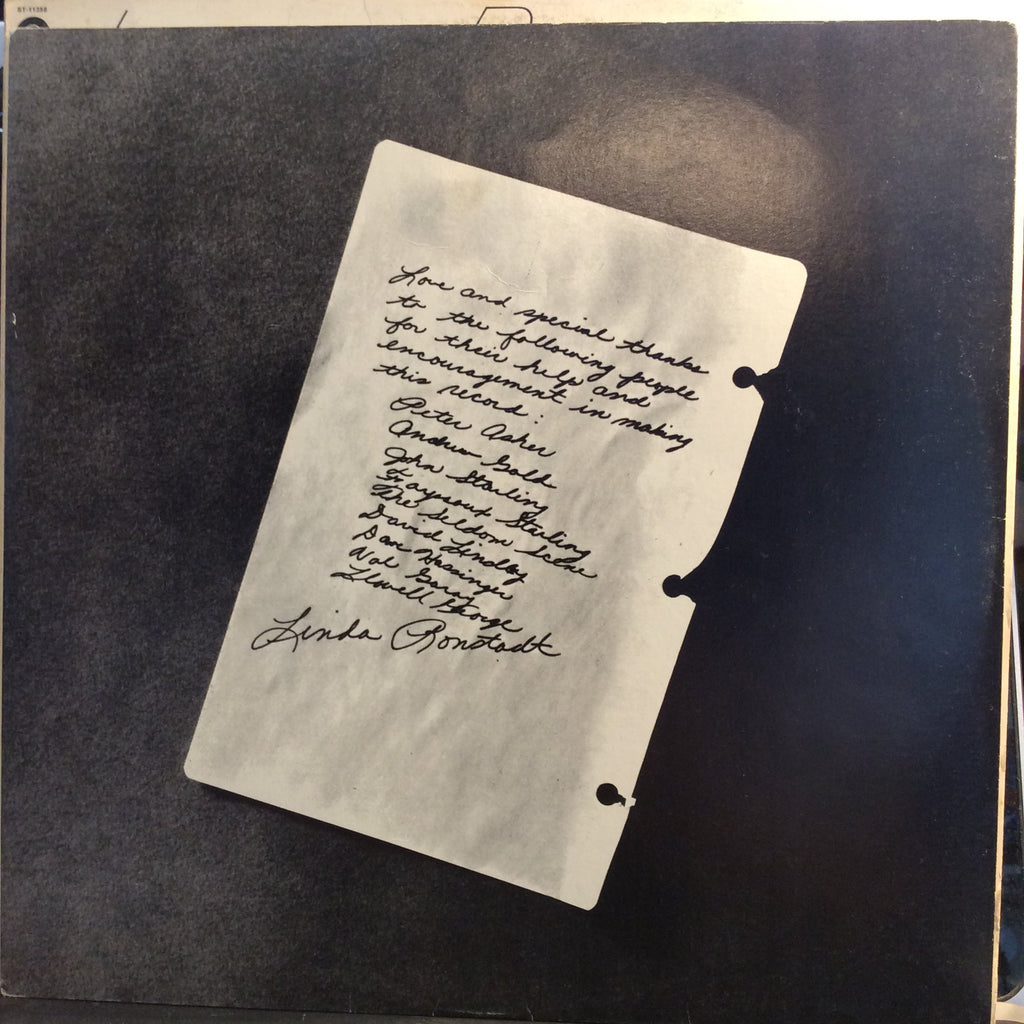 ST-11358
Love and special thanks
to the following people
for their help and
encouragement in making
this record:
Peter Asher
Andrew Gold
John Starling
Fayssoux Starling
The Seldom Scene
David Lindley
Dan
Val Garay
Llowell George
Linda Ronstadt